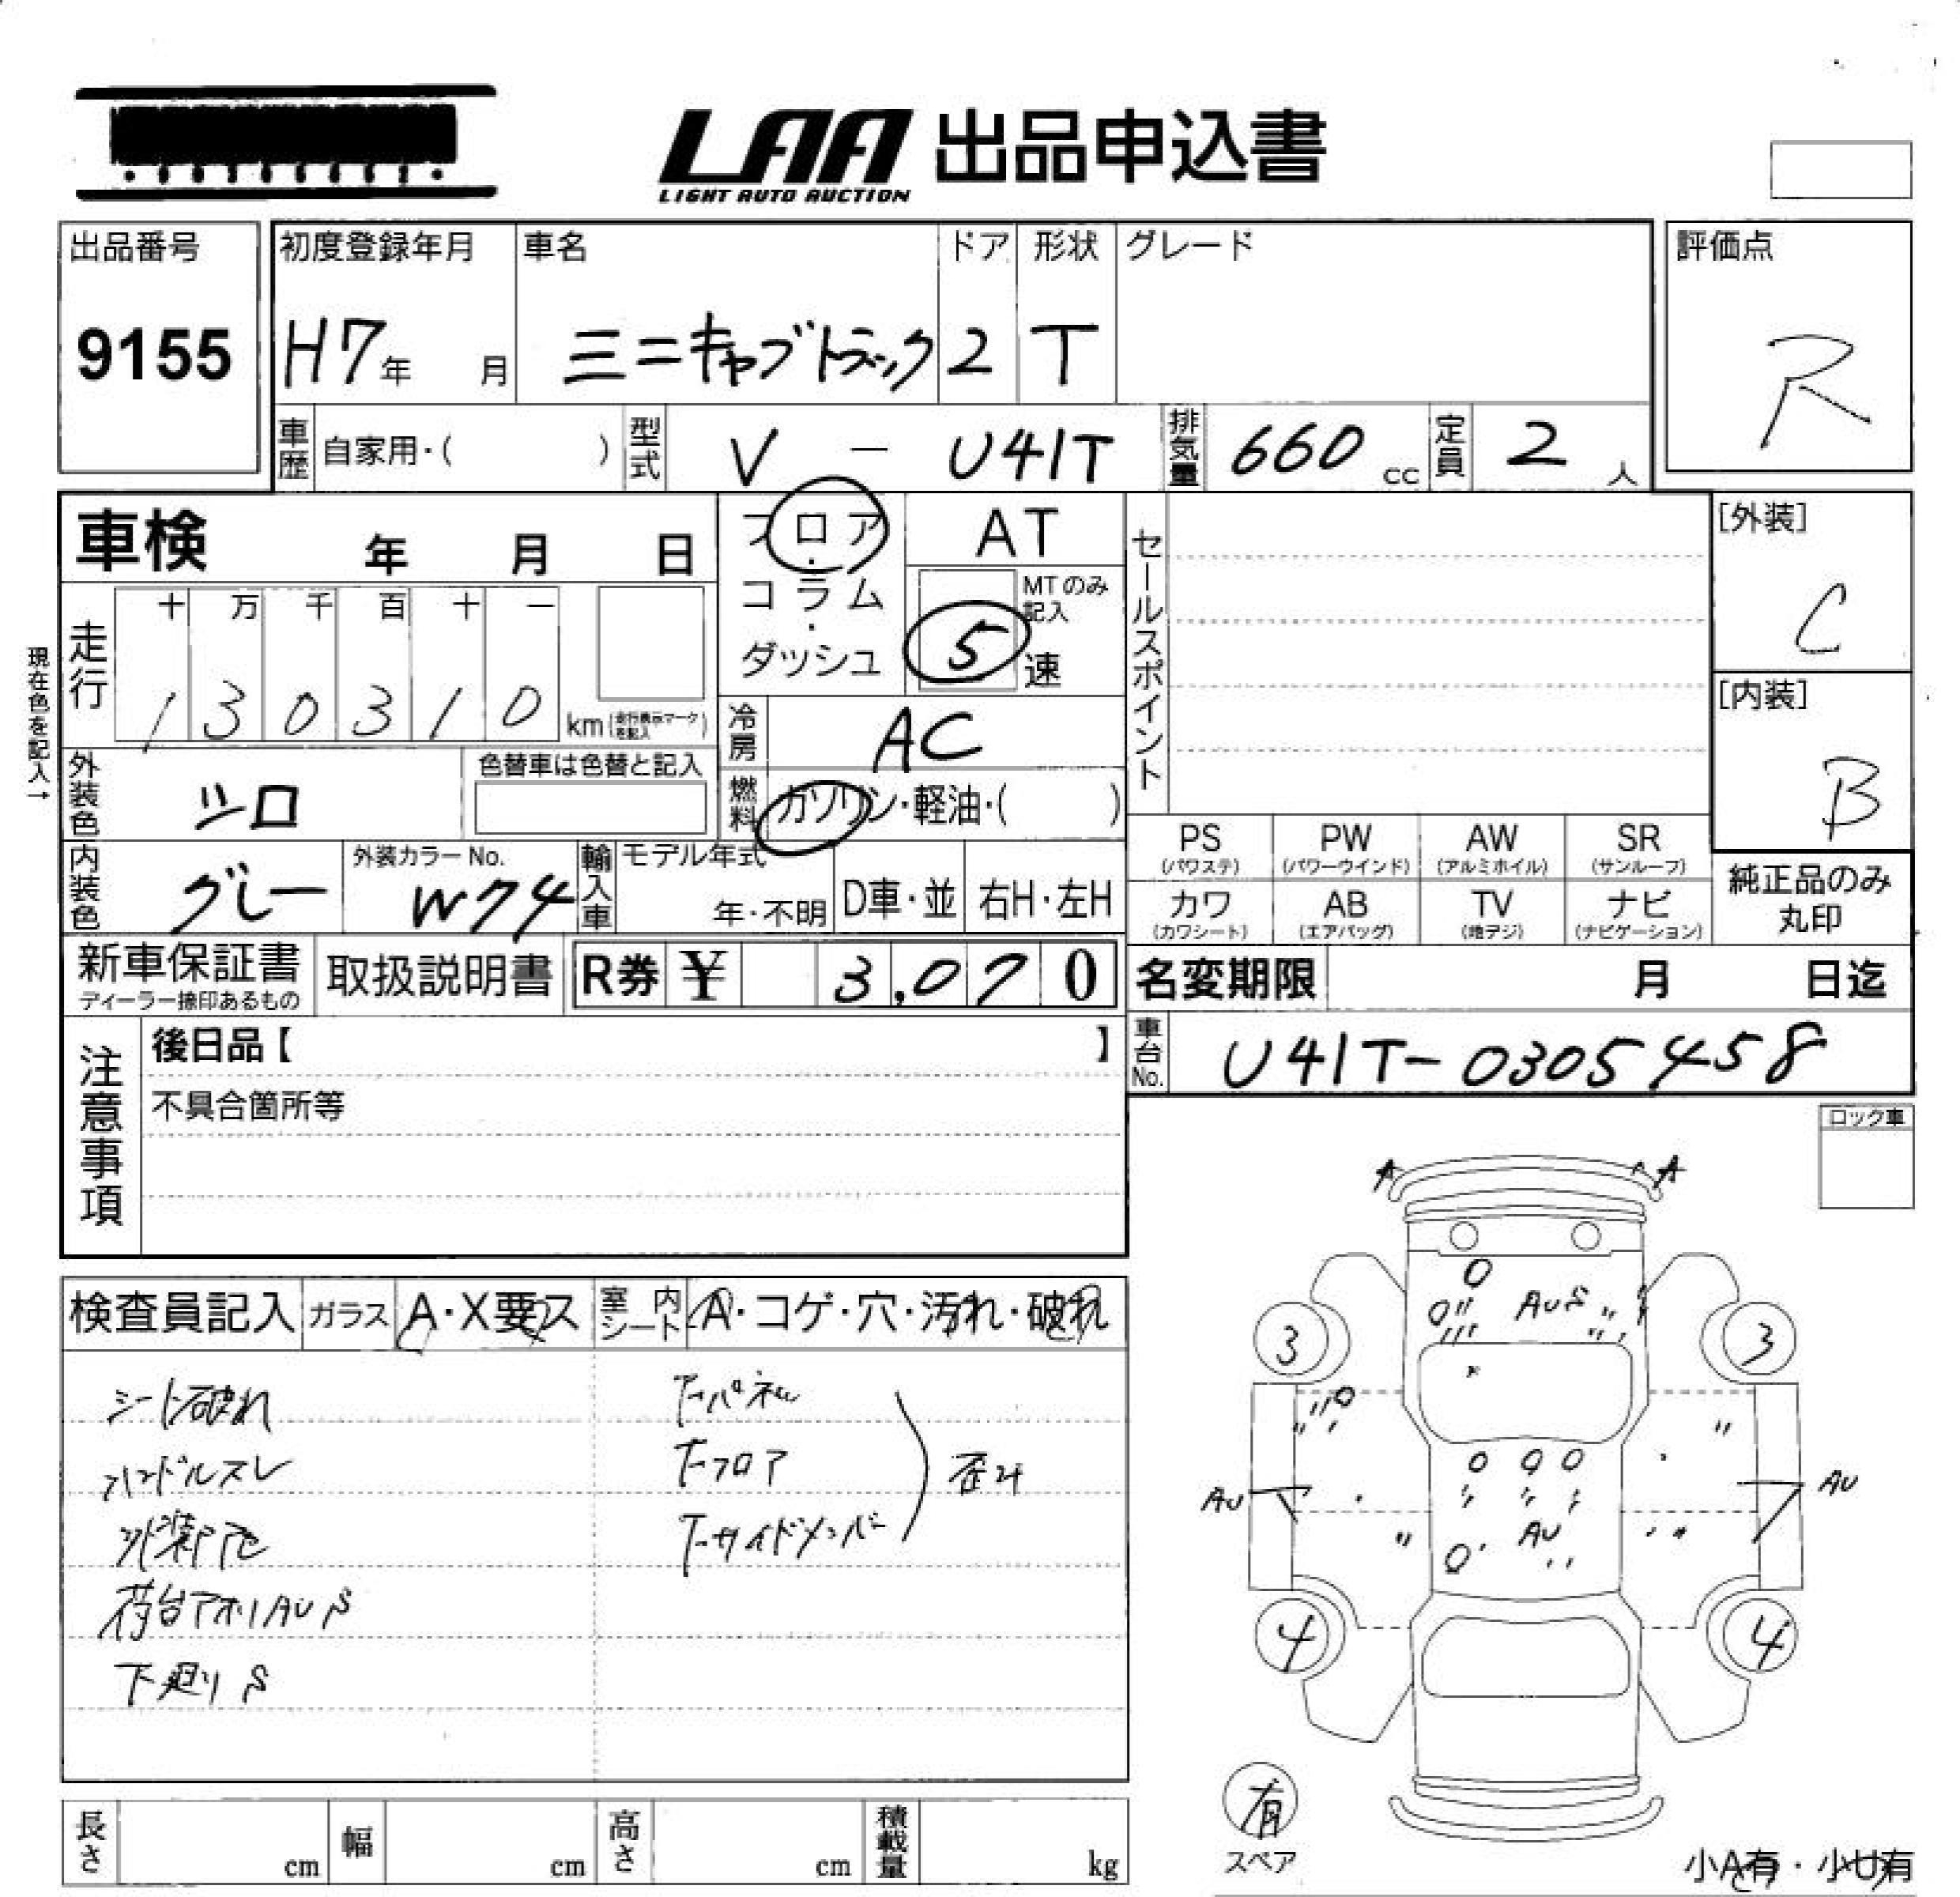 LAA 出品申込書
LIGHT AUTO AUCTION
出品番号
9155
初度登録年月
H7年 月
車名
ミニキャブトラック
ドア
2
形状
T
グレード
評価点
R
車歴 自家用・( )
型式 V - U41T
排気量 660 cc
定員 2 人
車検 年 月 日
フロア・コラム・ダッシュ
AT
MTのみ記入
5 速
セールスポイント
[外装]
C
[内装]
B
現在色を記入→
走行
十 万 千 百 十 一
1 3 0 3 1 0 km (走行表示マークを記入)
冷房 AC
外装色 シロ
色替車は色替と記入
燃料 ガソリン・軽油・( )
内装色 グレー
外装カラーNo. W74
輸入車
モデル年式
年・不明
D車・並
右H・左H
PS (パワステ)
PW (パワーウインド)
AW (アルミホイル)
SR (サンルーフ)
カワ (カワシート)
AB (エアバッグ)
TV (地デジ)
ナビ (ナビゲーション)
純正品のみ丸印
新車保証書
ディーラー捺印あるもの
取扱説明書
R券 ¥ 3,070
名変期限 月 日迄
車台No. U41T-0305458
注意事項
後日品【 】
不具合箇所等
ロック車
検査員記入
ガラス A・X要ス
室内シート A・コゲ・穴・汚れ・破れ
シート破れ
ハンドルスレ
外装
荷台アオリAUS
下廻りS
F-フロア
歪み
F-サイドメンバー
A
A
AUS
3
3
AU
AU
AU
4
4
有
スペア
小A有・小U有
長さ cm
幅 cm
高さ cm
積載量 kg